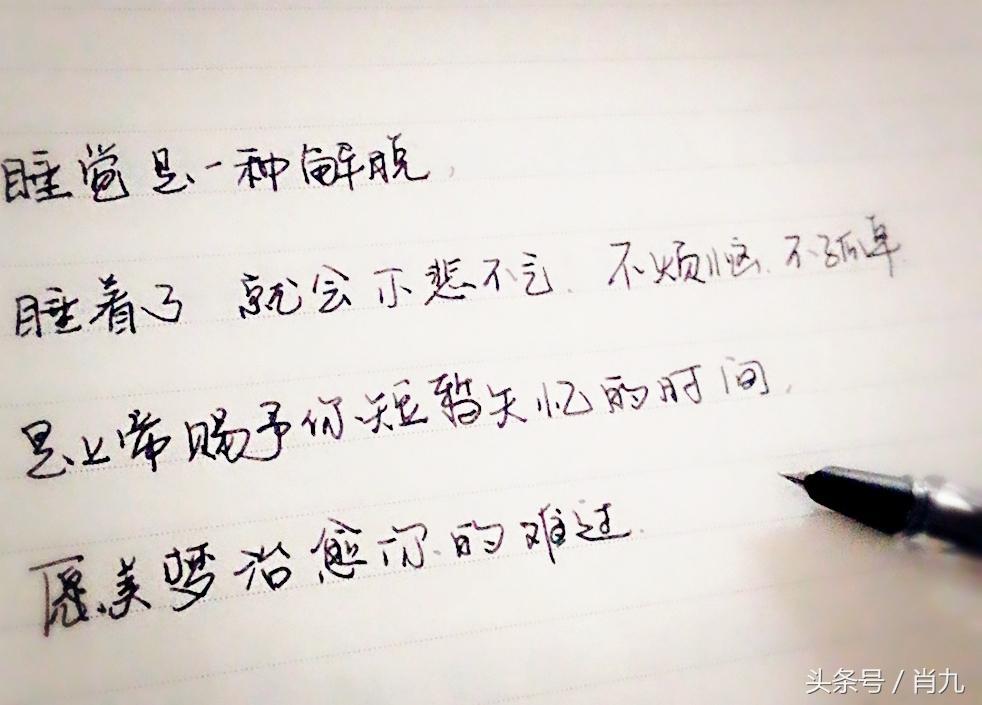 睡觉是一种解脱，
睡着了 就会不悲不亢、不烦恼、不孤单
是上帝赐予你短暂失忆的时间，
愿美梦治愈你的难过.
头条号 / 肖九